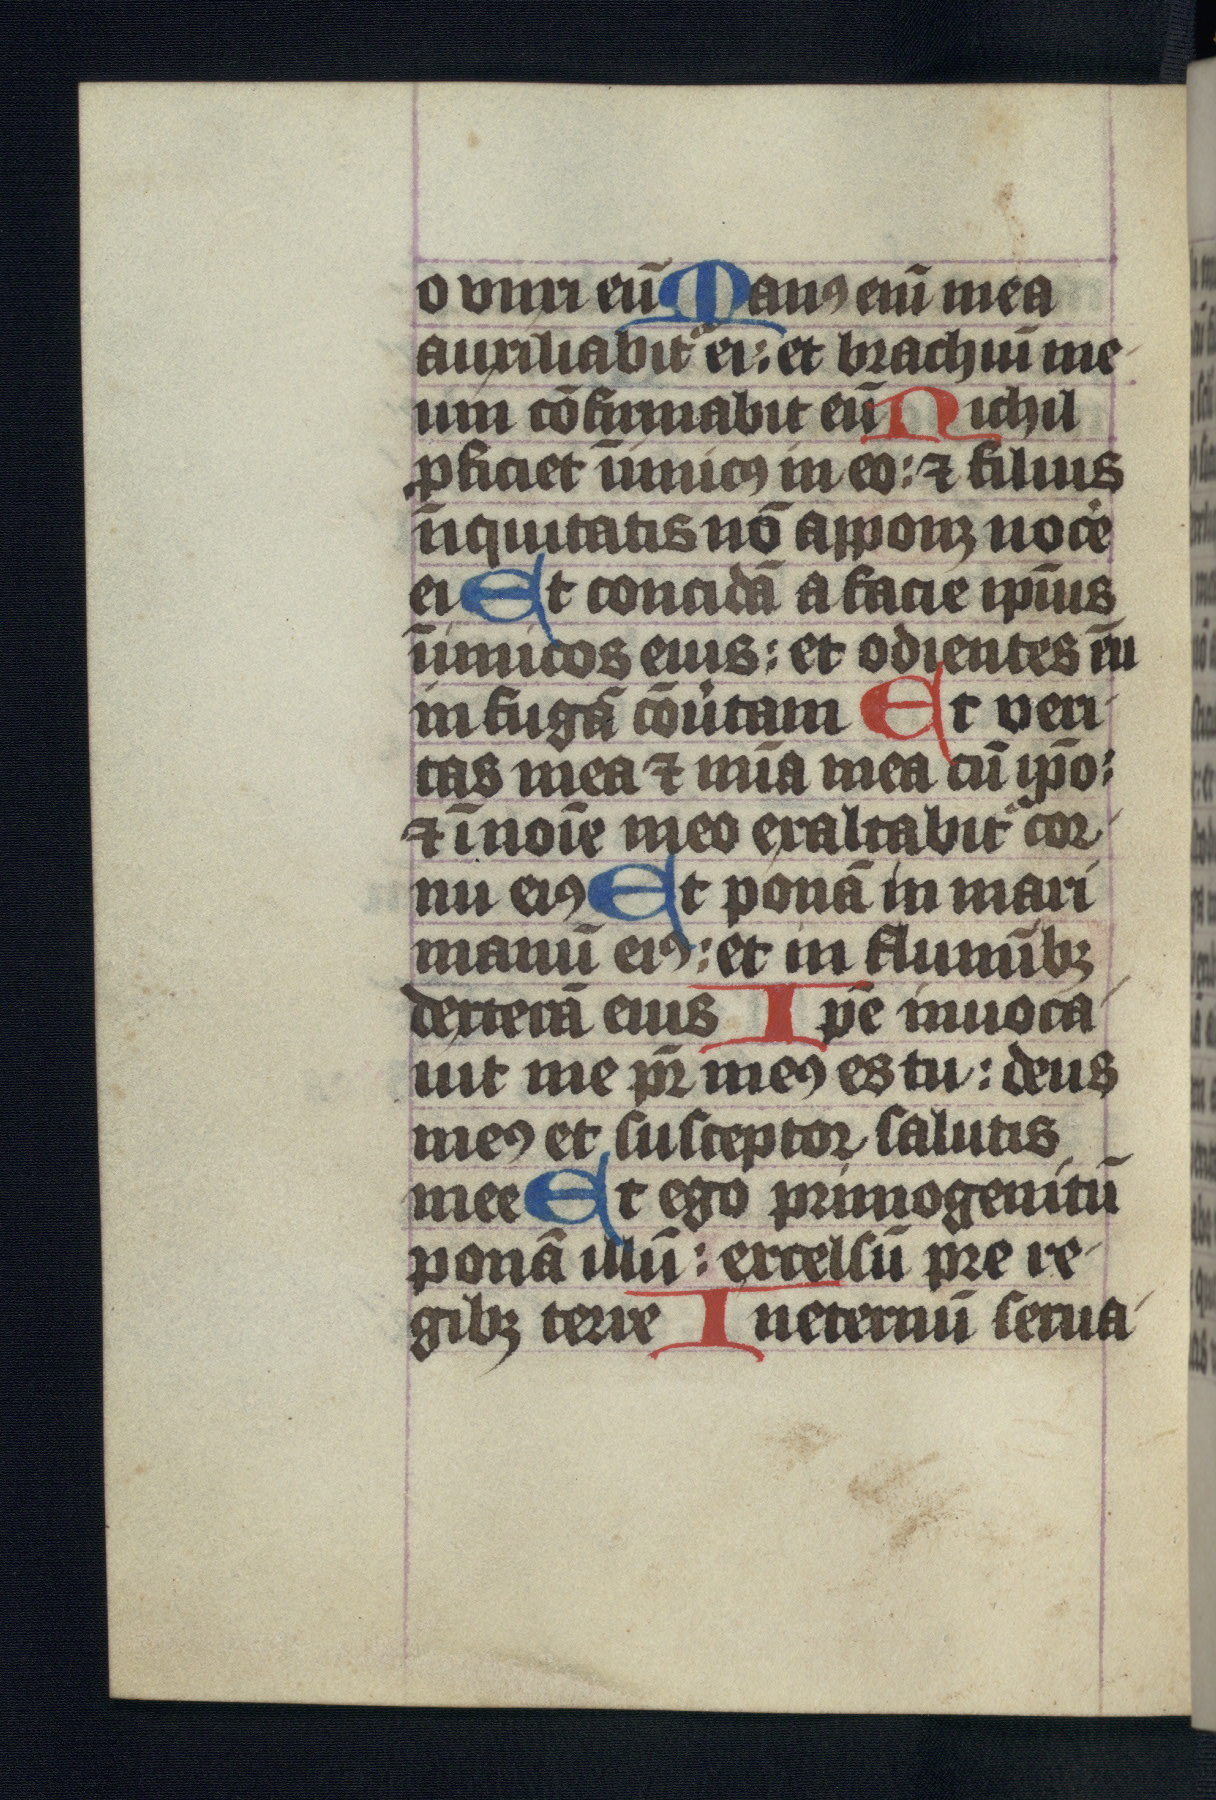 o vnxi eū Manꝰ eni̅ mea
auxiliabit᷑ ei : et brachiū me
um cōfirmabit eū Nichil
ꝓficiet īimicꝰ in eo : ⁊ filius
īiquitatis nō apponꝫ nocē
ei Et concidā a facie ip̄ius
īimicos eius : et odientes eū
in fugā cōu̾tam Et veri
tas mea ⁊ mīa mea cū ip̄o :
⁊ ī noīe meo exaltabit᷑ cor
nu eiꝰ Et ponā in mari
manū eiꝰ : et in fluminībꝫ
dexterā eius Ip̄e inuoca
uit me pr̄ meꝰ es tu : deus
meꝰ et susceptor salutis
mee Et ego primogenitū
ponā illū : excelsū pre re
gibꝫ terre In eternū serua